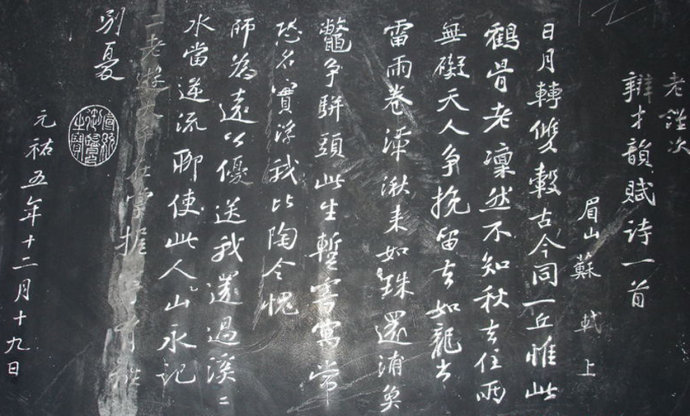 老謹次
辯才韻賦詩一首
眉山蘇軾上
日月轉雙轂古今同一丘惟此
鶴骨老凜然不知秋去住兩
無礙天人爭挽留去如龍出
雷雨卷潭湫来如珠還浦魚
鼈爭駢頭此生蹔寄寓常
恐名實浮我比陶令愧
師為遠公優送我還過溪〻
水當逆流聊使此人山永記
二老遊大千在掌握
別憂
元祐五年十二月十九日